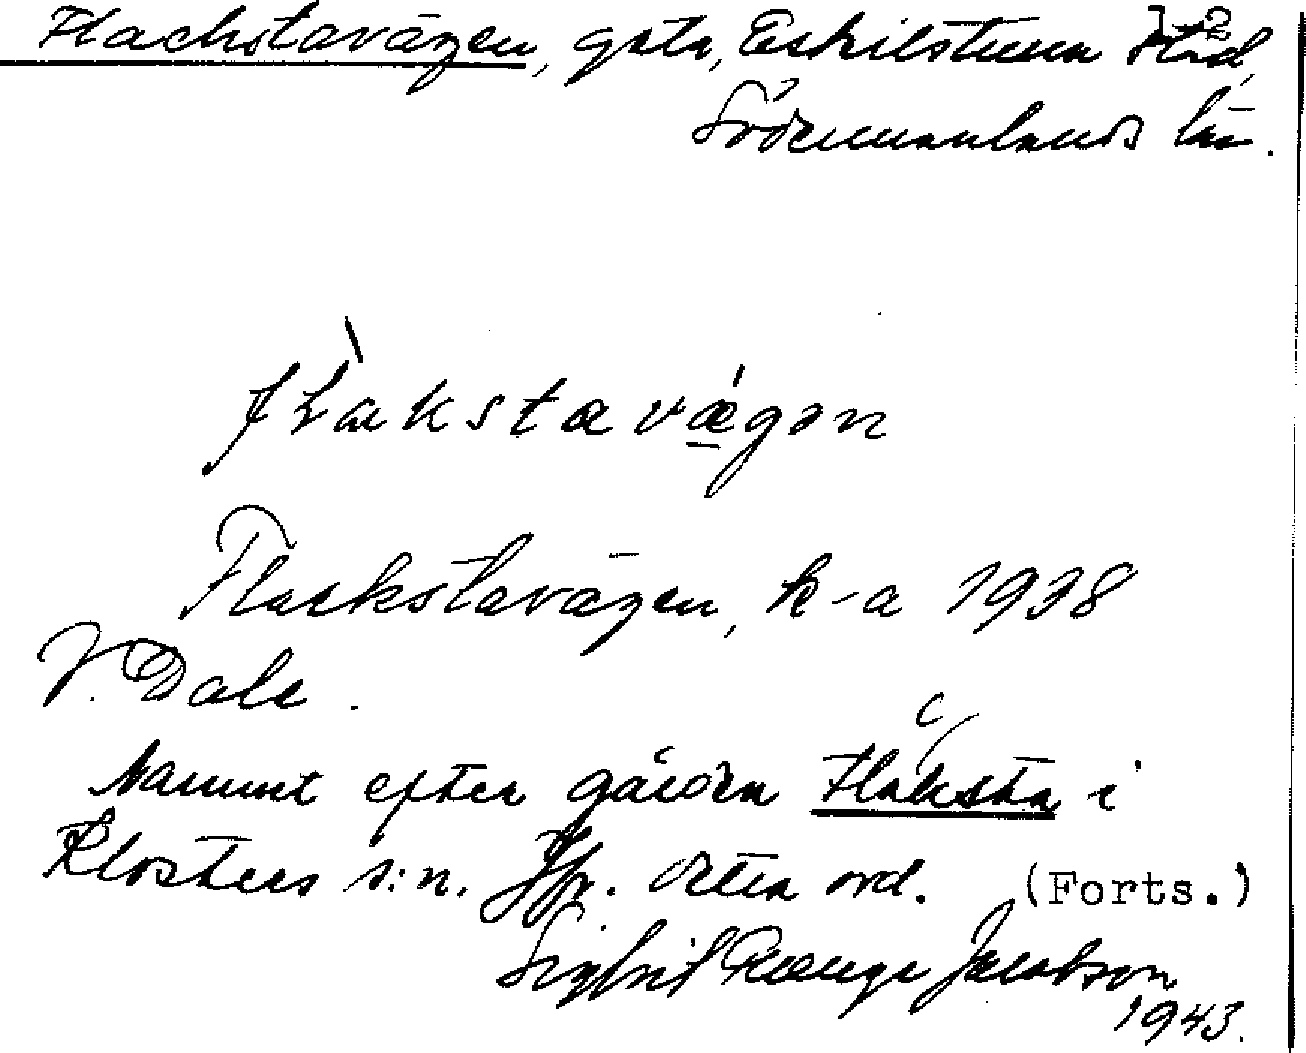 Flackstavägen, gata, Eskilstuna stad,
Södermanlands län.
flàkstavǽgən
Flackstavägen, k-a 1938
V. Dale.
Namnet efter gården Flacksta i
Klosters s:n. Jfr. detta ord. (Forts.)
Sigfrid Ræunge Jacobson
1943.